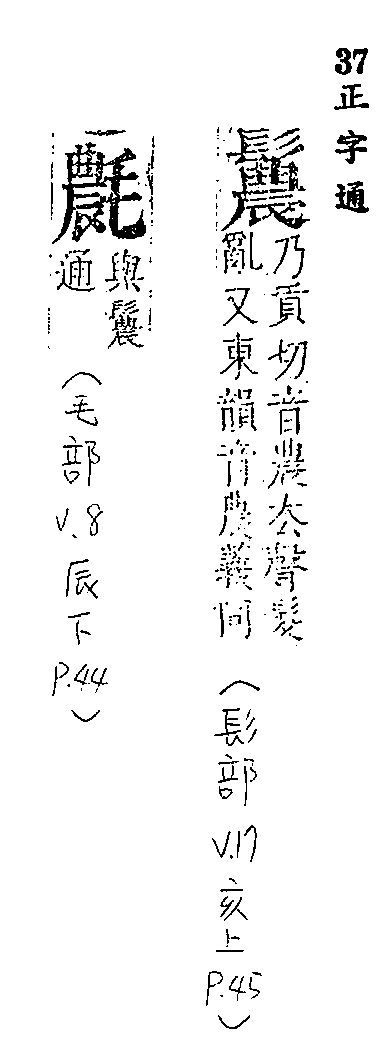 37正字通
鬞
乃貢切音農去聲髮
亂又東韻音農義同
（髟部 V.17 亥上 P.45）
𣰊
與鬞
通
（毛部 V.8 辰下 P.44）